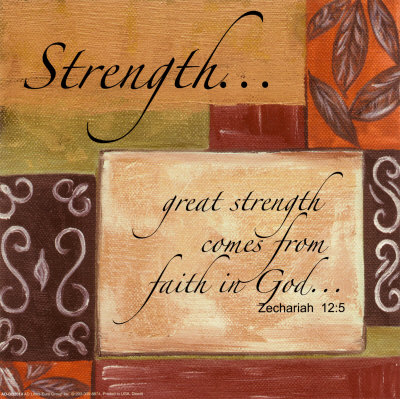 Strength...
great strength
comes from
faith in God...
Zechariah 12:5